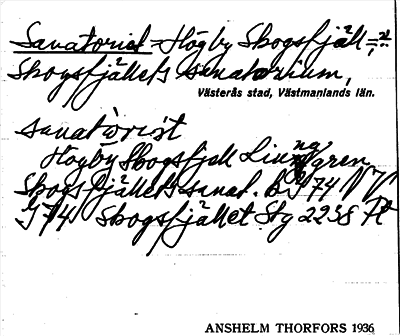 Sanatoriet = Högby Skogsfjäll =
Skogsfjällets sanatorium,
Västerås stad, Västmanlands län.
sanatòri`et
Högby Skogsfjell Ljunggren
Skogsfjällets sanat. bl J74 NV
J74 Skogsfjället Sty 2238 Pl
ANSHELM THORFORS 1936